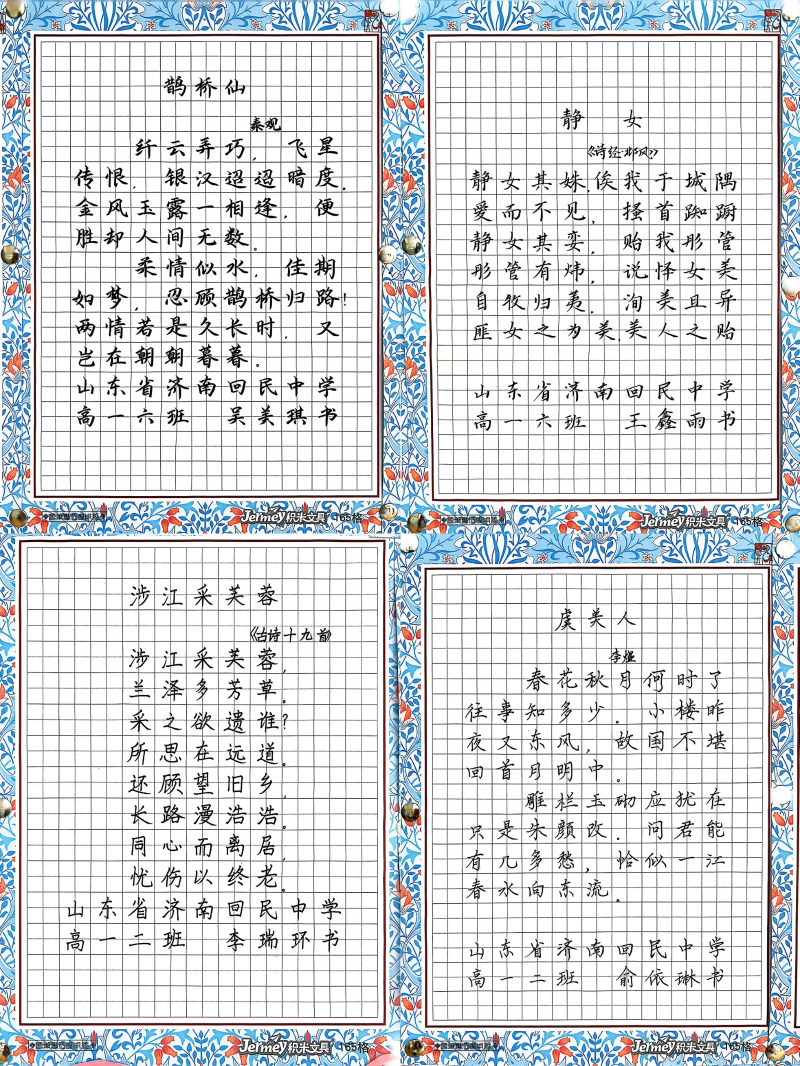 鹊桥仙
秦观
纤云弄巧，飞星
传恨，银汉迢迢暗度。
金风玉露一相逢，便
胜却人间无数。
柔情似水，佳期
如梦，忍顾鹊桥归路！
两情若是久长时，又
岂在朝朝暮暮。
山东省济南回民中学
高一六班 吴美琪书
Jermey积米文具 165格
静女
《诗经·邶风》
静女其姝.俟我于城隅
爱而不见，搔首踟蹰
静女其娈，贻我彤管
彤管有炜，说怿女美
自牧归荑，洵美且异
匪女之为美.美人之贻
山东省济南回民中学
高一六班 王鑫雨书
Jermey积米文具 165格
涉江采芙蓉
《古诗十九首》
涉江采芙蓉，
兰泽多芳草。
采之欲遗谁？
所思在远道。
还顾望旧乡，
长路漫浩浩。
同心而离居，
忧伤以终老。
山东省济南回民中学
高一二班 李瑞环书
Jermey积米文具 165格
虞美人
李煜
春花秋月何时了
往事知多少。小楼昨
夜又东风，故国不堪
回首月明中。
雕栏玉砌应犹在
只是朱颜改.问君能
有几多愁，恰似一江
春水向东流。
山东省济南回民中学
高一二班 俞依琳书
Jermey积米文具 165格